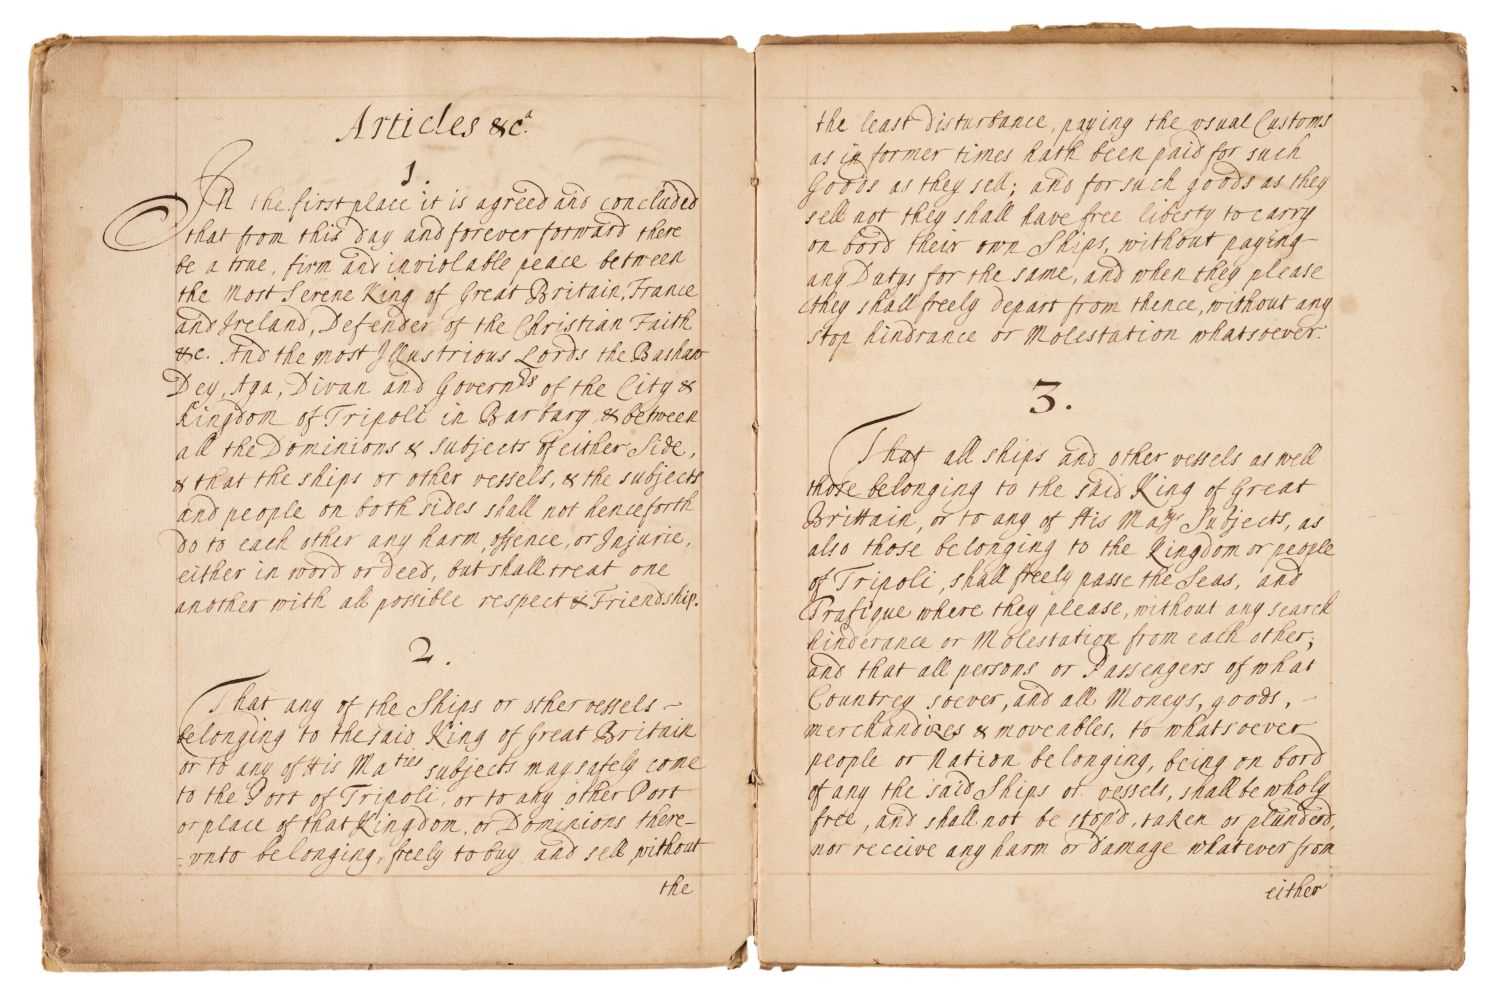 Articles &c.a
1.
In the first place it is agreed and concluded
that from this day and forever forward there
be a true, firm and inviolable peace between
the Most Serene King of Great Britain, France
and Ireland, Defender of the Christian Faith
&c. And the most Illustrious Lords the Bashaw
Dey, Aga, Divan and Governrs of the City &
Kingdom of Tripoli in Barbary & between
all the Dominions & subjects of either Side,
& that the ships or other vessels, & the subjects
and people on both sides shall not henceforth
do to each other any harm, offence, or Injurie,
either in word or deed, but shall treat one
another with all possible respect & Friendship.
2.
That any of the Ships or other vessels -
belonging to the said King of Great Britain
or to any of His Maties subjects may safely come
to the Port of Tripoli, or to any other Port
or place of that Kingdom, or Dominions there-
-unto belonging, freely to buy and sell without
the
the least disturbance, paying the usual Customs
as in former times hath been paid for such
Goods as they sell; and for such goods as they
sell not they shall have free liberty to carry
on bord their own Ships, without paying-
any Dutys for the same, and when they please
they shall freely depart from thence, without any
stop hindrance or Molestation whatsoever.
3.
That all ships and other vessels as well
those belonging to the said King of Great
Brittain, or to any of His Matys Subjects, as
also those belonging to the Kingdom or people
of Tripoli, shall freely passe the Seas, and
Trafique where they please, without any search
hinderance or Molestation from each other;
and that all persons or Passengers of what
Countrey soever, and all Moneys, goods, -
merchandizes & moveables, to whatsoever
people or Nation belonging, being on bord
of any the said Ships or vessels, shall be wholy
free, and shall not be stopd, taken or plunderd,
nor receive any harm or damage whatever from
either